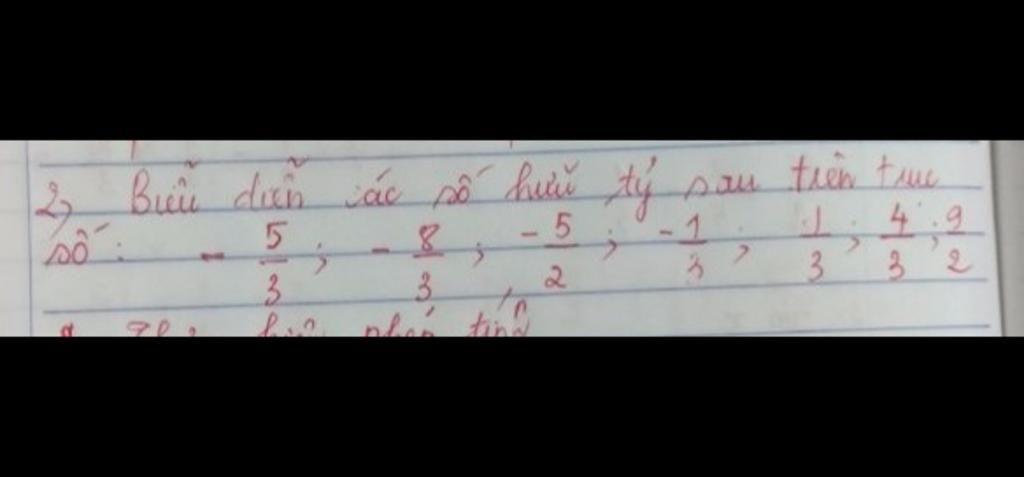 2) Biểu diễn các số hữu tỷ sau trên trục
số: - 5/3 ; - 8/3 ; -5/2 ; -1/3 ; 1/3 ; 4/3 ; 9/2
phép tính